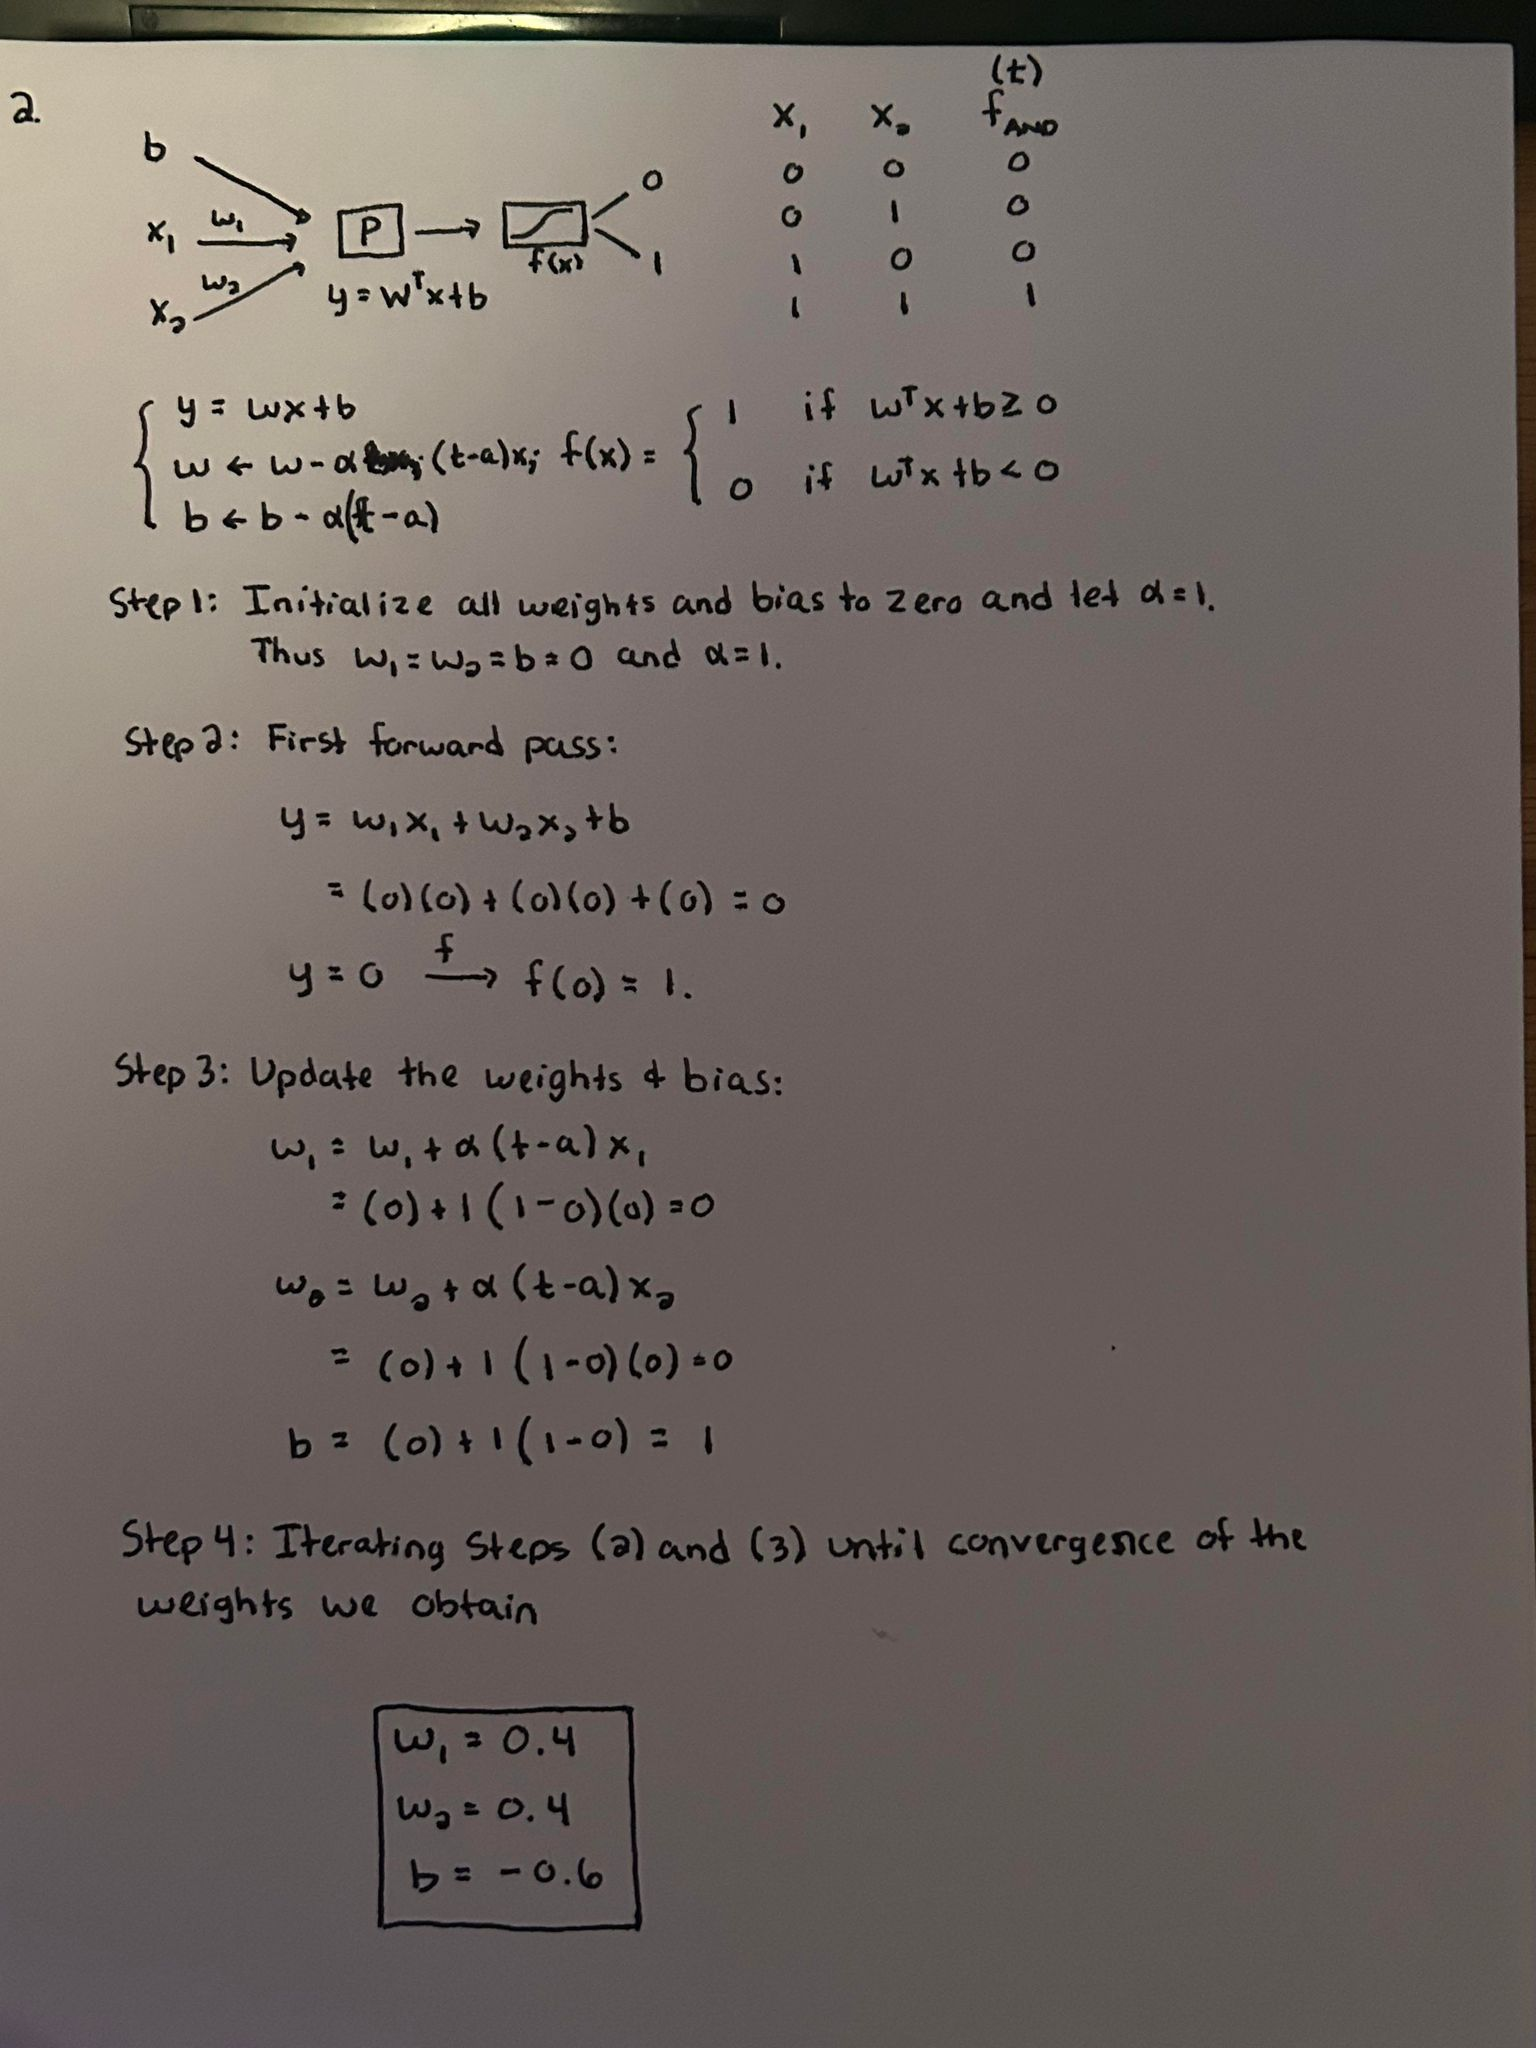 2.
b
x₁ w₁
x₂ w₂
P
y = wᵀx+b
f(x)
0
1
(t)
x₁ x₂ f AND
0 0 0
0 1 0
1 0 0
1 1 1
y = wx+b
w ← w - α (t-a)xⱼ
b ← b - α(t-a)
f(x) = { 1 if wᵀx+b ≥ 0
0 if wᵀx+b < 0
Step 1: Initialize all weights and bias to zero and let α=1.
Thus w₁ = w₂ = b = 0 and α=1.
Step 2: First forward pass:
y = w₁x₁ + w₂x₂ + b
= (0)(0) + (0)(0) + (0) = 0
y = 0 →f f(0) = 1.
Step 3: Update the weights & bias:
w₁ = w₁ + α(t-a)x₁
= (0) + 1(1-0)(0) = 0
w₂ = w₂ + α(t-a)x₂
= (0) + 1(1-0)(0) = 0
b = (0) + 1(1-0) = 1
Step 4: Iterating Steps (2) and (3) until convergence of the
weights we obtain
w₁ = 0.4
w₂ = 0.4
b = -0.6